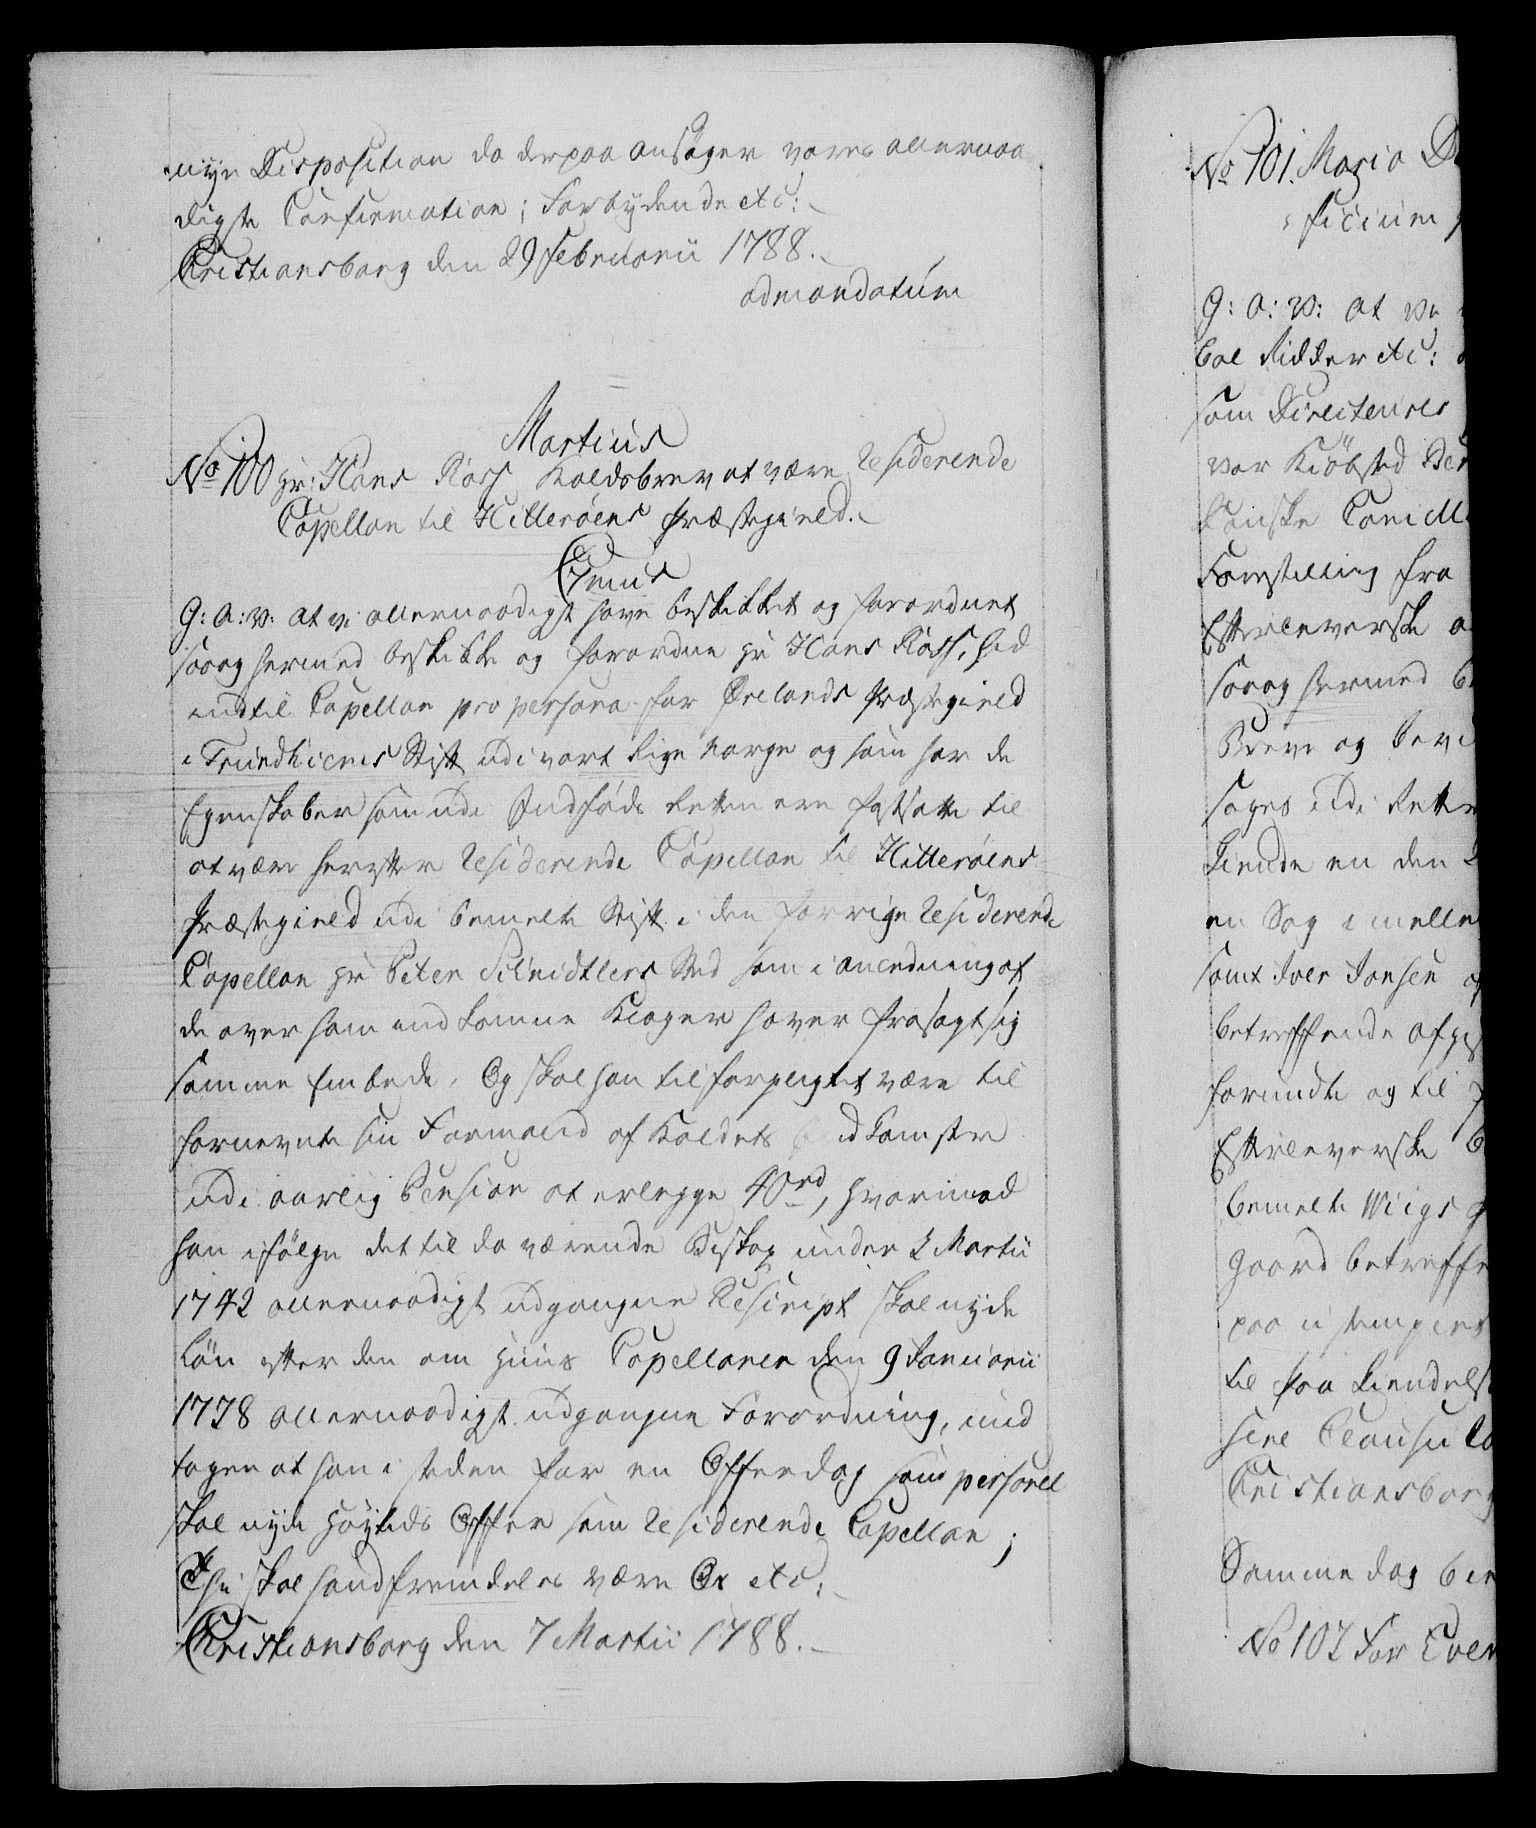 nye Disposition da derpaa ansøger vores allernaa
digste Confirmation; Forbydende etc:
Christiansborg den 29 Februarii 1788.
ad mandatum
Martius
No 100 Hr: Hans Ross Kaldsbrev at være residerende
Capellan til Hitterøens Præstegield.
G: A: V: at vi allernaadigst have beskikket og forordnet
saa og hermed beskikke og forordne Hr Hans Ross, hid
indtil Capellan pro persona for Ørelands Præstegield
i Trundhiems Stift udi vort Rige Norge og som har de
Egenskaber som udi Indføds Retten ere fastsatte til
at være herefter residerende Capellan til Hitterøens
Præstegield udi bemelte Stift i den forrige residerende
Capellan Hr Peter Schnidtlers Sted som i anledning af
de over ham ind komne Klager haver frasagt sig
samme Embede. Og skal han tilforpligtet være til
fornevnte sin Formand af Kaldets Indkomster
udi aarlig Pension at erlegge 40 rd, hvorimod
han ifølge det til da værende Biskop under 2 Martii
1742 allernaadigst udgangne Rescript skal nyde
Løn efter den om Huus Capellaner den 9 Januarii
1738 allernaadigst udgangne Forordning, und
tagen at han i steden for en Offerdag som personel
skal nyde Høytids Offer som residerende Capellan;
Thi skal hand fremdeles være Os etc:
Christiansborg den 7 Martii 1788.
No 101. Maria
ficium
G: A: V: at vi
bal Ridder etc:
som Directeurer
vor Kiøbsted Ber
danske
Forestilling fra
Efterleverske
saa og hermed
Breve og bevi
sages udi Rette
kiende en den
en Sag imelle
samt Iver Jansen
betreffende
forundte og til
Efterleverske
bemelte Wiigs
gaard betreffe
paa u stemplet
til faa kiendelse
sere Clausula
Christiansborg
Samme dag
No 102 For